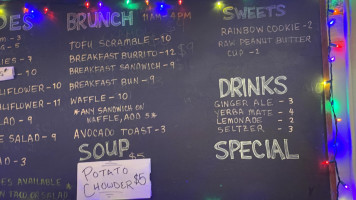 ES
BRUNCH 11AM-4PM
TOFU SCRAMBLE - 10
BREAKFAST BURRITO - 12
BREAKFAST SANDWICH - 9
BREAKFAST BUN - 9
WAFFLE - 10
*ANY SANDWICH ON
WAFFLE, ADD 5*
AVOCADO TOAST - 3
SOUP $5
POTATO
CHOWDER $5
SWEETS
RAINBOW COOKIE - 2
RAW PEANUT BUTTER
CUP - 2
DRINKS
GINGER ALE - 3
YERBA MATE - 4
LEMONADE - 2
SELTZER - 3
SPECIAL
- 3
- 5
- 10
LIFLOWER - 10
LIFLOWER - 10
- 9
SALAD - 9
- 9
ES AVAILABLE